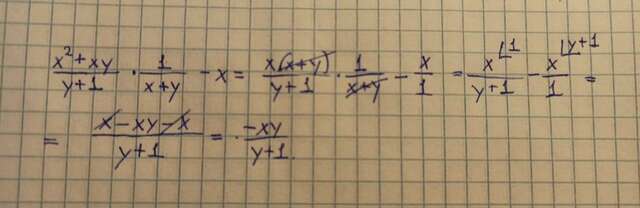 (x² + xy)/(y+1) · 1/(x+y) − x = x(x+y)/(y+1) · 1/(x+y) − x/1 = x⌊1/(y+1) − x⌊y+1/1 =
= (x − xy − x)/(y+1) = (−xy)/(y+1).